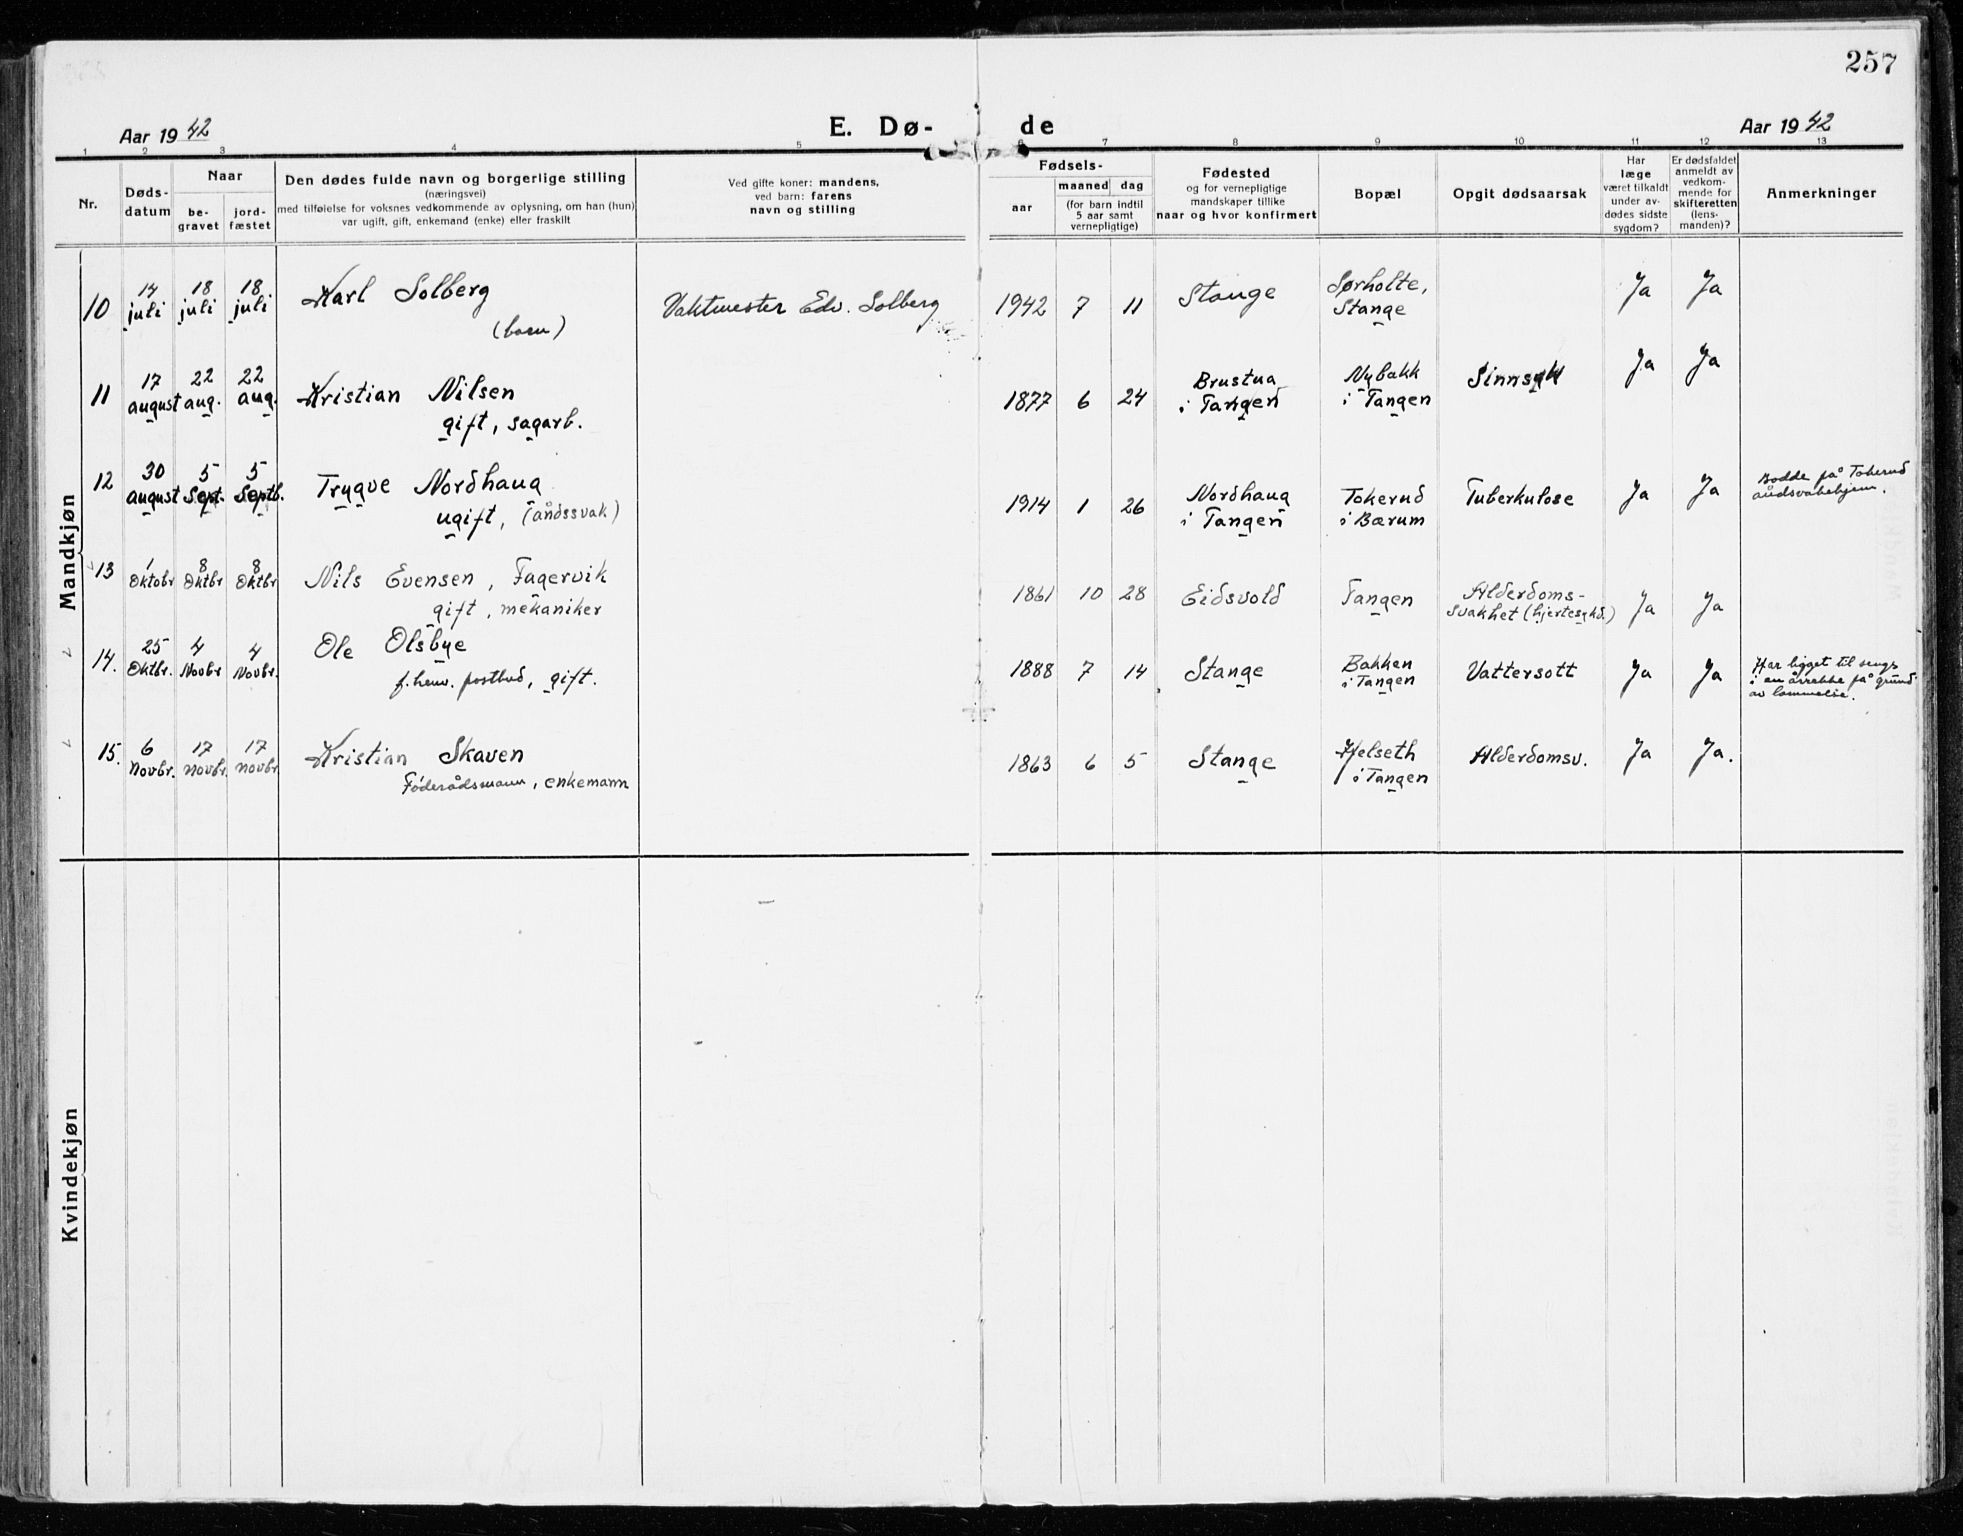 257
Aar 1942
E. Dø-
de
Aar 1942
1 2 3 4 5 6 7 8 9 10 11 12 13
Nr.
Døds-
datum
Naar
be-
gravet
jord-
fæstet
Den dødes fulde navn og borgerlige stilling
(næringsvei)
med tilføielse for voksnes vedkommende av oplysning, om han (hun)
var ugift, gift, enkemand (enke) eller fraskilt
Ved gifte koner: mandens,
ved barn: farens
navn og stilling
Fødsels-
aar
maaned dag
(for barn indtil
5 aar samt
vernepligtige)
Fødested
og for vernepligtige
mandskaper tillike
naar og hvor konfirmert
Bopæl
Opgit dødsaarsak
Har
læge
været tilkaldt
under av-
dødes sidste
sygdom?
Er dødsfaldet
anmeldt av
vedkom-
mende for
skifteretten
(lens-
manden)?
Anmerkninger
Mandkjøn
10 14 juli 18 juli 18 juli Karl Solberg
(barn)
Vaktmester Edv. Solberg 1942 7 11 Stange Sørholte,
Stange
Ja Ja
11 17 august 22 aug. 22 aug. Kristian Nilsen
gift, sagarb.
1877 6 24 Brustua
i Tangen
Nybakk
i Tangen
Sinnsyk Ja Ja
12 30 august 5 Sept. 5 Septb. Trygve Nordhaug
ugift, (åndssvak)
1914 1 26 Nordhaug
i Tangen
Tokerud
i Bærum
Tuberkulose Ja Ja Bodde på Tokerud
åndsvakehjem.
13 1 Oktobr 8 Oktbr 8 Oktbr Nils Evensen, Fagervik
gift, mekaniker
1861 10 28 Eidsvold Tangen Alderdoms-
svakhet (hjertesykd.)
Ja Ja
14. 25 Oktbr. 4 Novbr 4 Novbr. Ole Olsbye
f.henv. postbud, gift.
1888 7 14 Stange Bakken
i Tangen
Vattersott Ja Ja Har ligget til sengs
i en årrekke på grund
av lammelse.
15. 6 Novbr. 17 Novbr. 17 Novbr. Kristian Skaven
Føderådsmann, enkemann
1863 6 5 Stange Hjelseth
i Tangen
Alderdomsv. Ja Ja.
Kvindekjøn